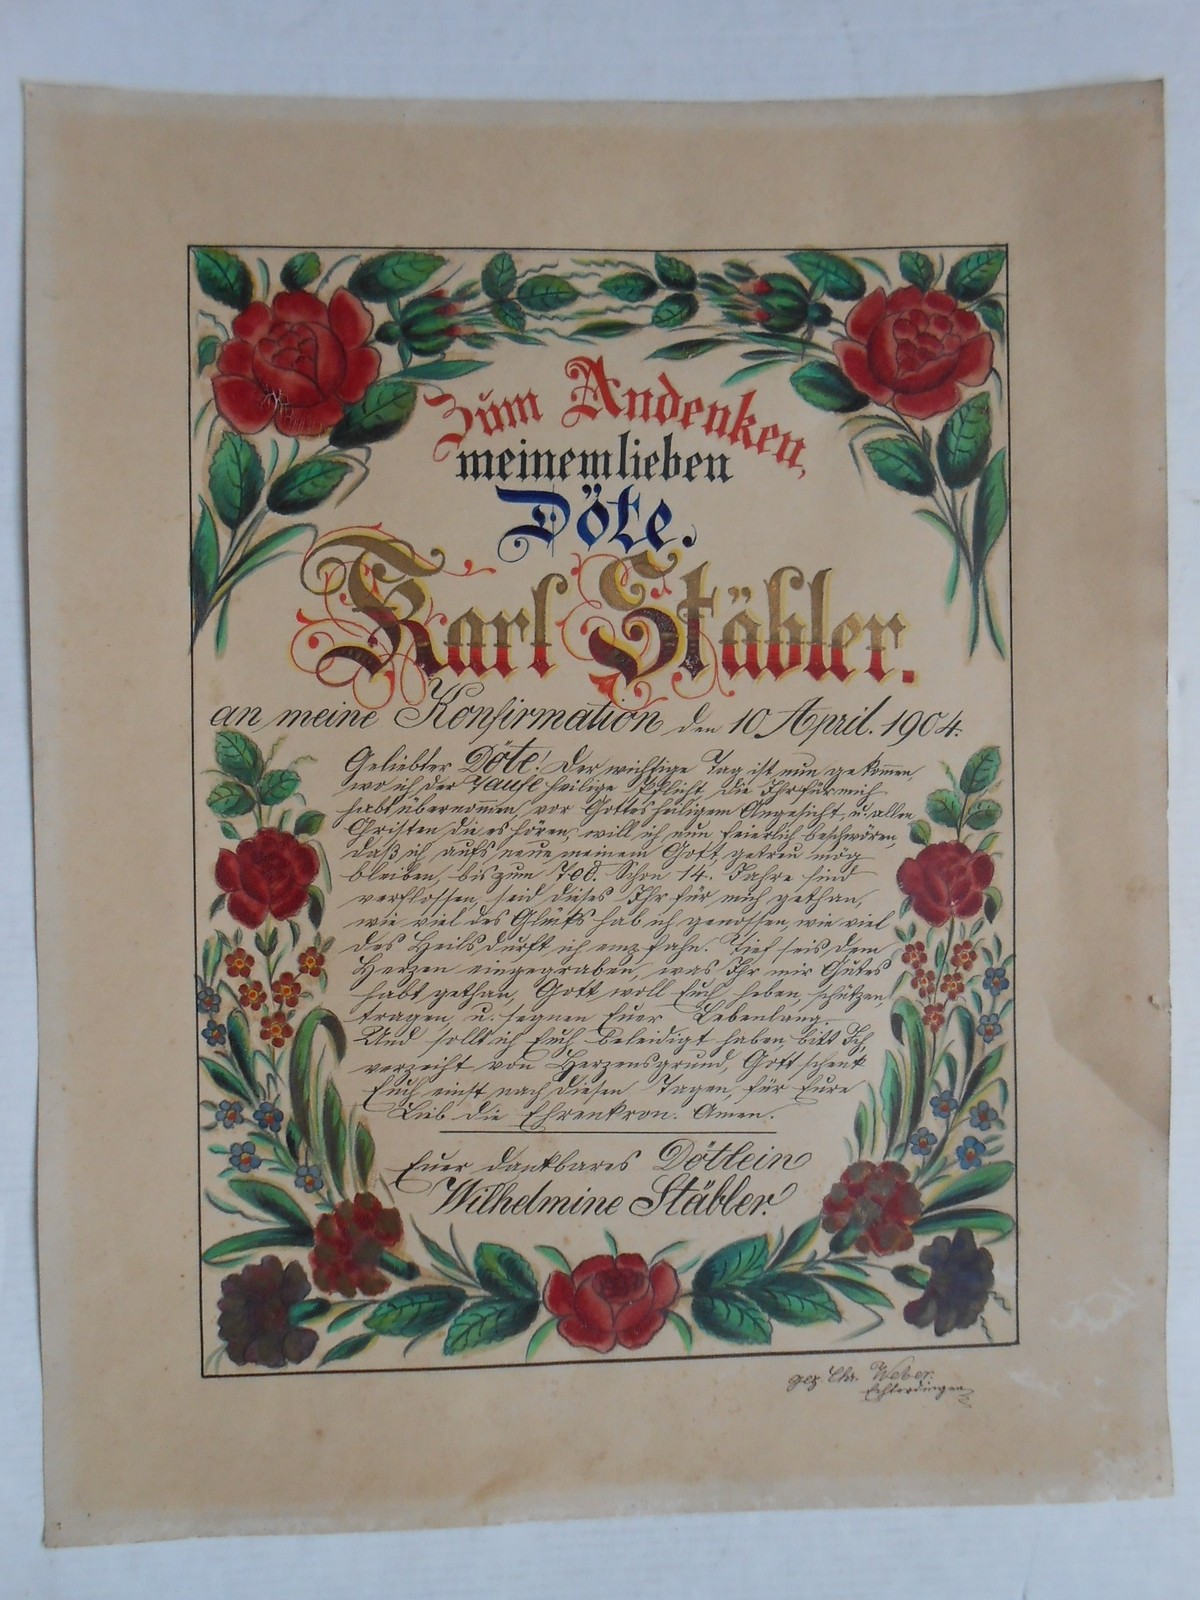 Zum Andenken,
meinem lieben
Döte.
Karl Stäbler.
an meine Konfirmation den 10 April. 1904.
Geliebter Döte! Der wichtige Tag ist nun gekommen,
wo ich der Taufe heilige Pflicht, die Ihr für mich
habt übernommen, vor Gottes heiligem Angesicht, u. allen
Christen die es hören, will ich nun feierlich beschwören,
daß ich aufs neue meinem Gott, getreu mög
bleiben, bis zum Tod. Schon 14. Jahre sind
verflossen, seid dieses Ihr für mich gethan,
wie viel des Glücks hab ich genossen, wie viel
des Heils durft ich empfahn. Tief seis dem
Herzen eingegraben, was Ihr mir Gutes
habt gethan, Gott woll Euch heben, schützen,
tragen, u. segnen Euer Lebenlang.
Und sollt ich Euch beleidigt haben, bitt Ich,
verzeiht von Herzensgrund, Gott schenk
Euch einst nach diesen Tagen, für Eure
Lieb die Ehrenkron. Amen.
Euer dankbares Dötlein
Wilhelmine Stäbler.
gez. Chr. Weber.
Echterdingen